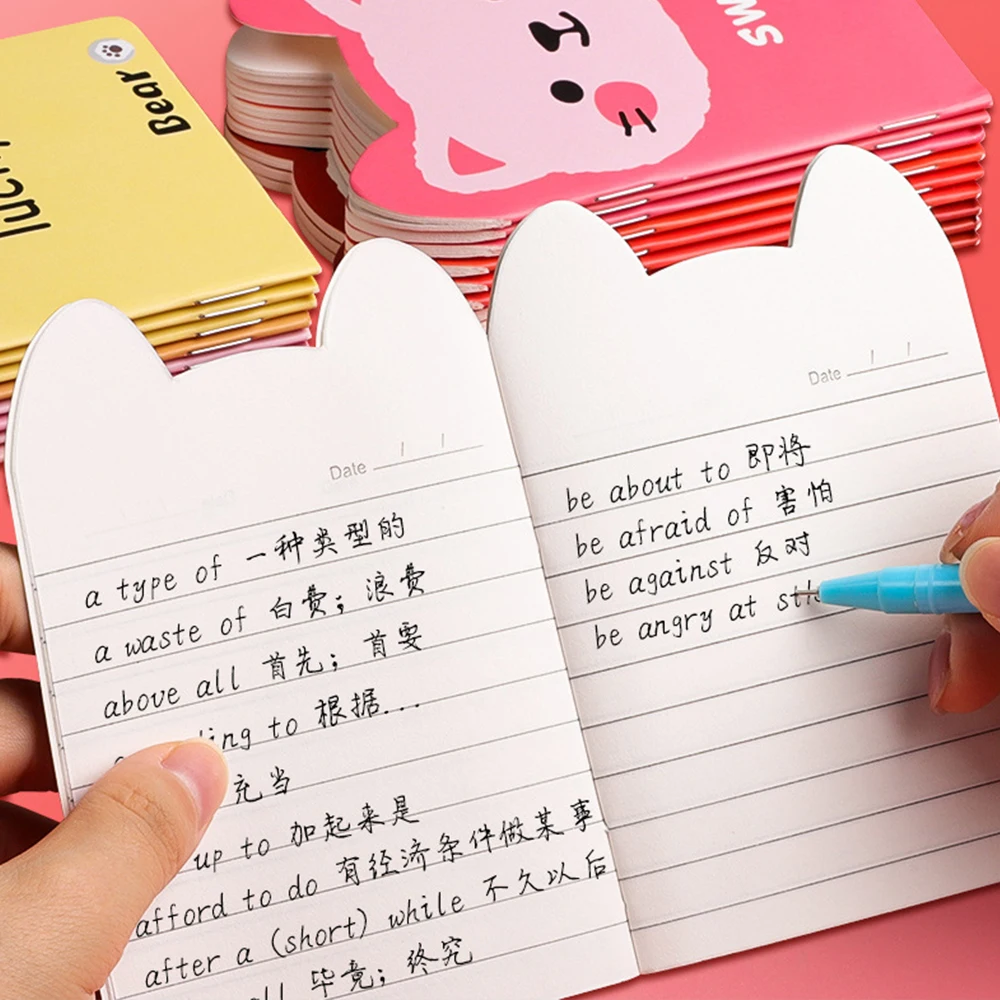 Bear
lucky
SWe
Date / /
a type of 一种类型的
a waste of 白费；浪费
above all 首先；首要
ding to 根据...
充当
up to 加起来是
afford to do 有经济条件做某事
after a (short) while 不久以后
all 毕竟；终究
Date / /
be about to 即将
be afraid of 害怕
be against 反对
be angry at sth